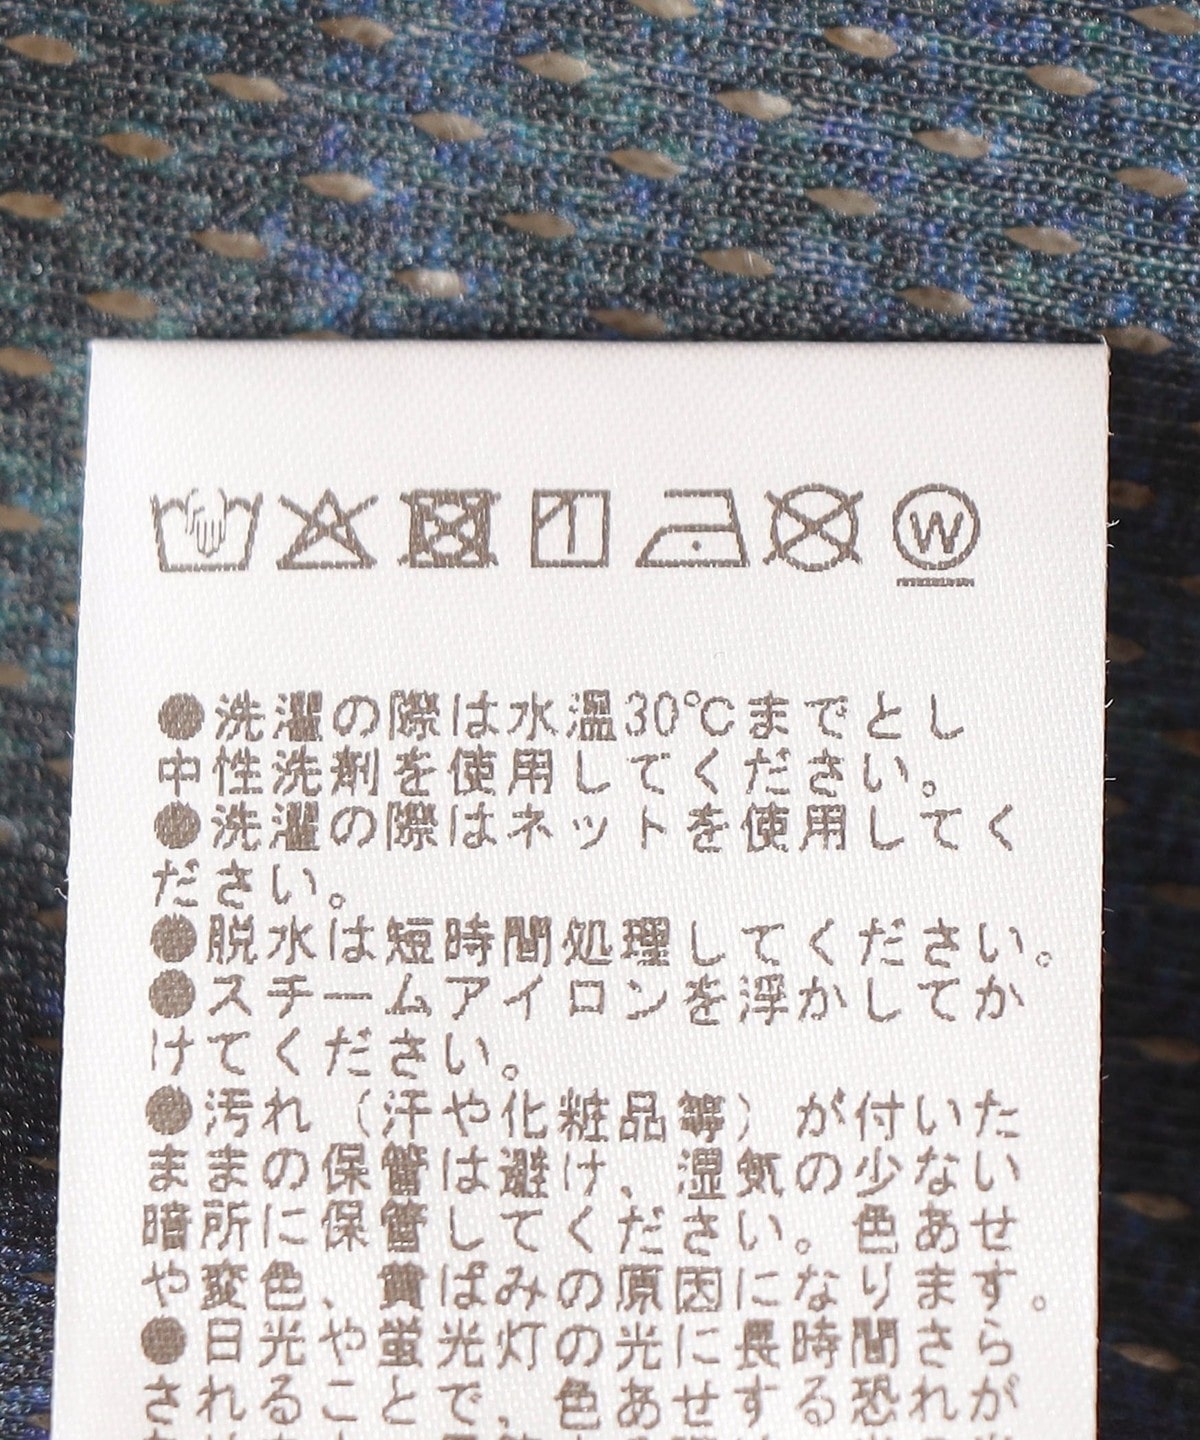 W
●洗濯の際は水温30℃までとし
中性洗剤を使用してください。
●洗濯の際はネットを使用してく
ださい。
●脱水は短時間処理してください。
●スチームアイロンを浮かしてか
けてください。
●汚れ（汗や化粧品等）が付いた
ままの保管は避け、湿気の少ない
暗所に保管してください。色あせ
や変色、黄ばみの原因になります。
●日光や蛍光灯の光に長時間さら
されることで、色あせする恐れが